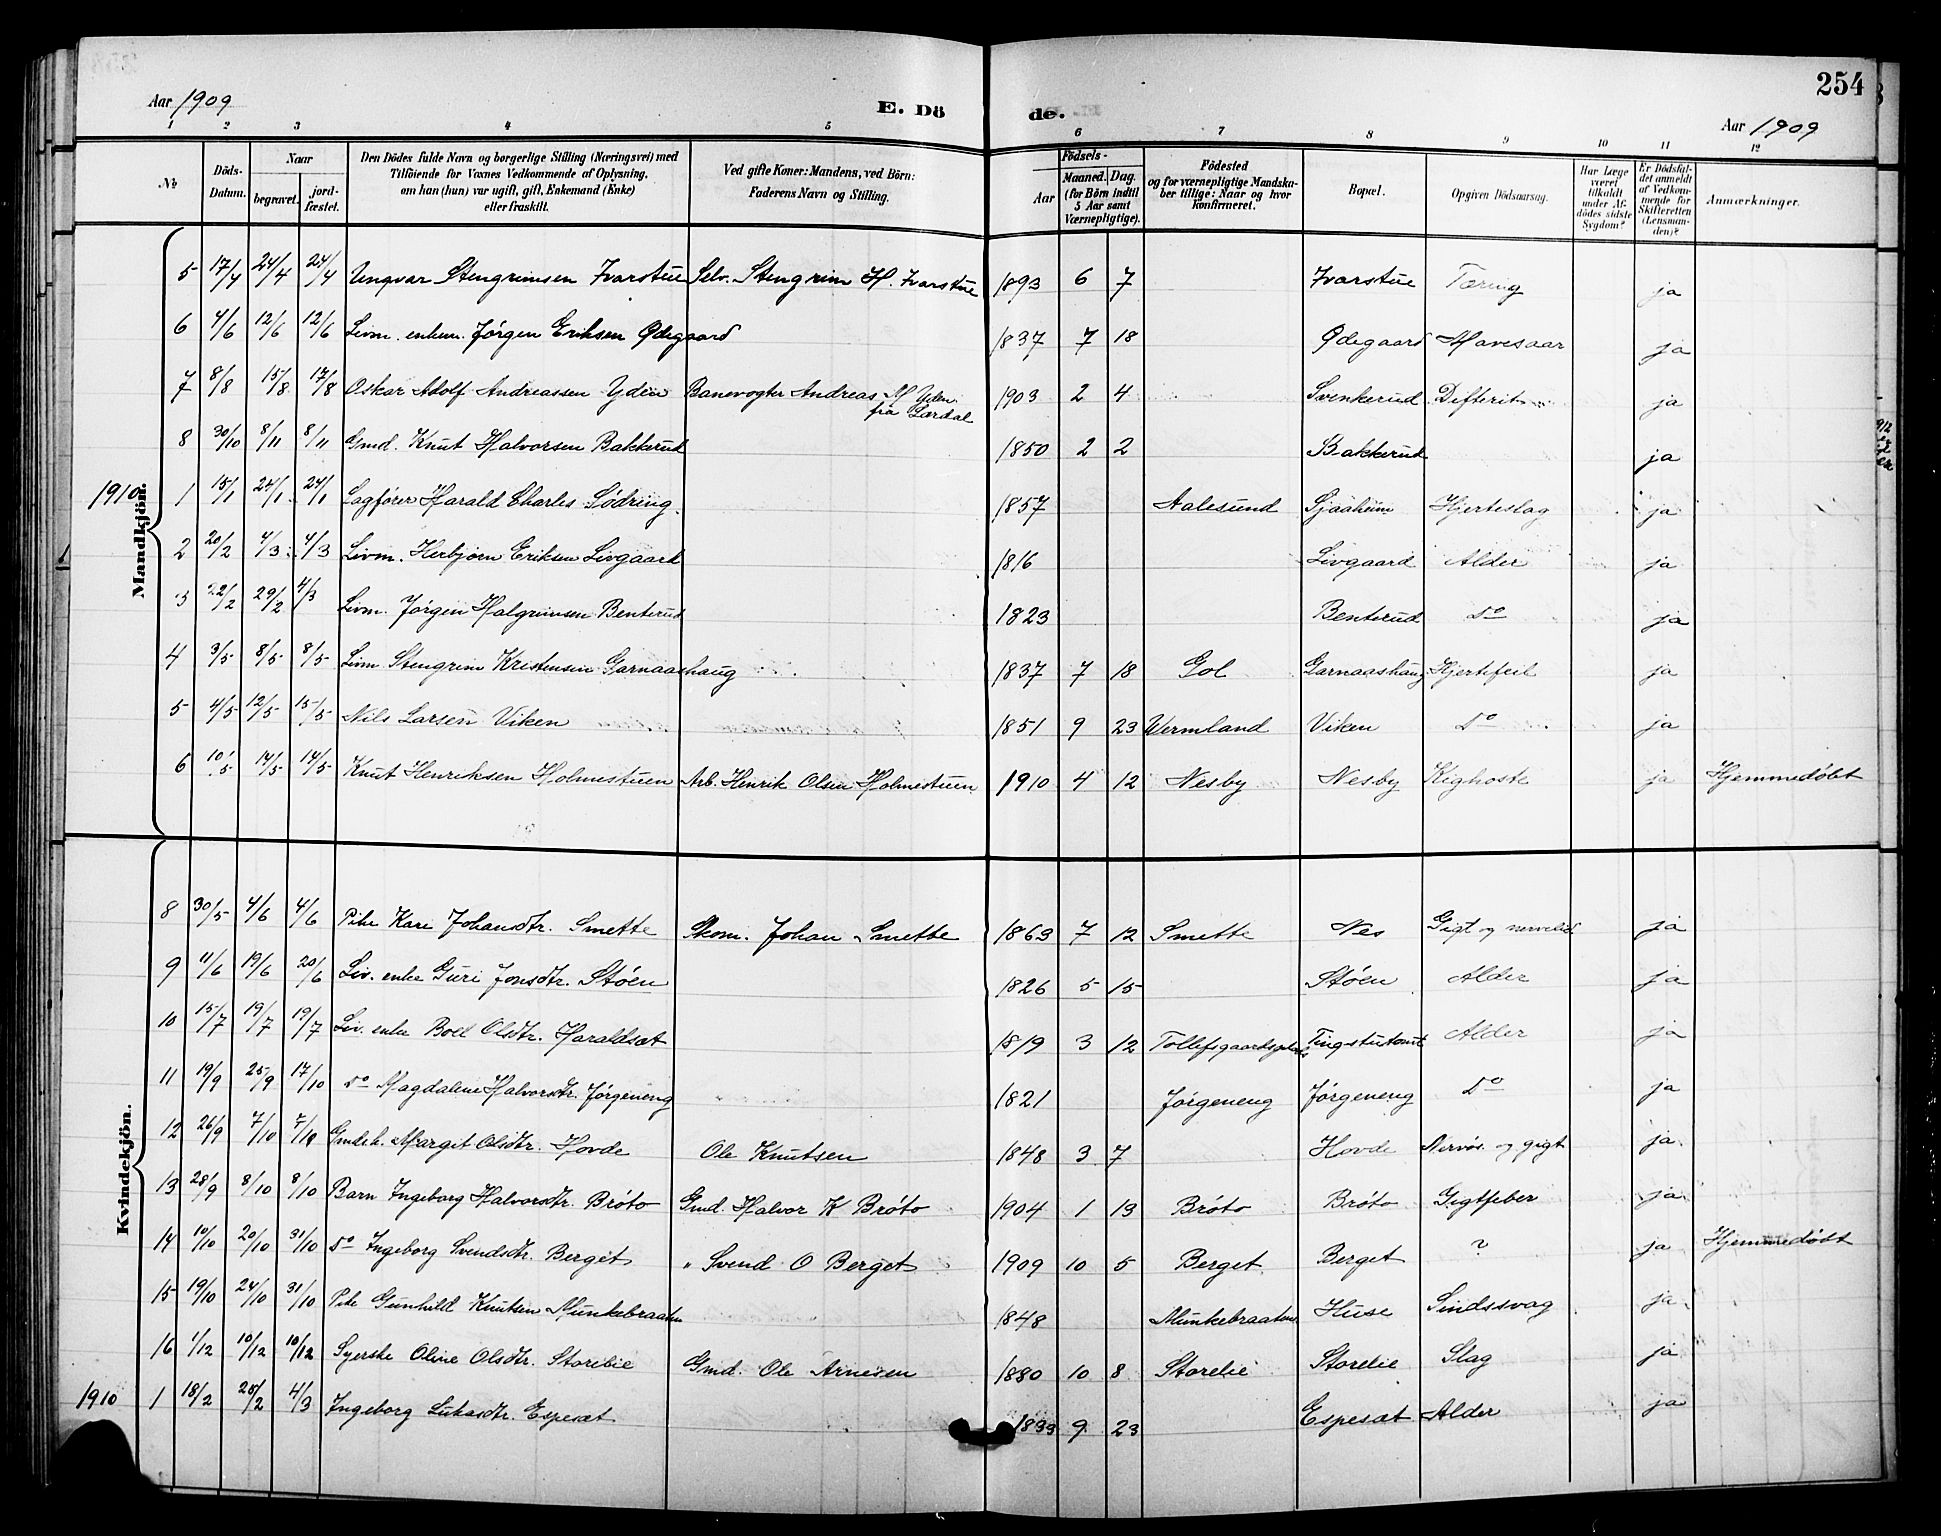 254
Aar 1909 E. Dö de. Aar 1909
1 2 3 4 5 6 7 8 9 10 11 12
№ Döds-Datum. Naar begravet. jordfæstet. Den Dödes fulde Navn og borgerlige Stilling (Næringsvei) med Tilföiende for Voxnes Vedkommende af Oplysning, om han (hun) var ugift, gift, Enkemand (Enke) eller fraskilt. Ved gifte Koner: Mandens, ved Börn: Faderens Navn og Stilling. Födsels- Aar Maaned. Dag. (for Börn indtil 5 Aar samt Værnepligtige). Födested og for værnepligtige Mandskaber tillige: Naar og hvor konfirmeret. Bopæl. Opgiven Dödsaarsag. Har Læge været tilkaldt under Afdödes sidste Sygdom? Er Dödsfaldet anmeldt af Vedkommende for Skifteretten (Lensmanden)? Anmærkninger.
Mandkjön.
5 17/4 24/4 24/4 Ungvar Stengrimsen Ivarstue Selv. Stengrim H. Ivarstue 1893 6 7 Ivarstue Tæring ja
6 4/6 12/6 12/6 Livm. enkem. Jørgen Eriksen Ødegaard 1837 7 18 Ødegaard Mavesaar ja
7 8/8 15/8 17/8 Oskar Adolf Andreassen Yden Banevogter Andreas M Yden fra Lærdal 1903 2 4 Svenkerud Difterit ja
8 30/10 8/11 8/11 Gmd. Knut Halvorsen Bakkerud 1850 2 2 Bakkerud ja
1910 1 15/1 24/1 24/1 Sagfører Harald Charles Södring. 1857 Aalesund Sjaaheim Hjerteslag ja
2 20/2 4/3 4/3 Livm. Herbjørn Eriksen Livgaard 1816 Livgaard Alder ja
3 22/2 29/2 4/3 Livm. Jørgen Halgrimsen Benterud 1823 Benterud do ja
4 3/5 8/5 8/5 Livm Stengrim Kristensen Garnaashaug 1837 7 18 Gol Garnaashaug Hjertefeil ja
5 4/5 12/5 15/5 Nils Larsen Viken 1851 9 23 Wermland Viken do ja
6 10/5 14/5 14/5 Knut Henriksen Holmestuen Arb. Henrik Olsen Holmestuen 1910 4 12 Nesby Nesby Kighoste ja Hjemmedøbt
Kvindekjön.
8 30/5 4/6 4/6 Pike Kari Johansdtr. Smette Skom. Johan Smette 1863 7 12 Smette Nes Gigt og ja
9 11/6 19/6 20/6 Liv. enke Guri Jonsdtr. Støen 1826 5 15 Støen Alder ja
10 15/7 19/7 19/7 Liv. enke Boel Olsdtr. Haraldset 1819 3 12 Alder ja
11 19/9 25/9 17/10 do Magdalene Halvorsdtr. Jørgeneng 1821 Jørgeneng Jørgeneng do ja
12 26/9 7/10 7/10 Gmdsk. Margit Olsdtr. Hovde Ole Knutsen 1848 3 7 Hovde Nervøs. og gigt ja.
13 28/9 8/10 8/10 Barn Ingeborg Halvorsdtr. Bröto Gmd. Halvor K Bröto 1904 1 13 Bröto Bröto Gigtfeber ja.
14 10/10 20/10 31/10 do Ingeborg Svendsdtr. Berget " Svend O Berget 1909 10 5 Berget Berget ? ja Hjemmedøbt
15 19/10 24/10 31/10 Pike Gunhild Knutsen Munkebraaten 1848 Munkebraaten Huse Sindssvag ja.
16 1/12 10/12 10/12 Syerske Oline Olsdtr. Storelie Gmd. Ole Arnesen 1880 10 8 Storelie Storelie Slag ja
1910 1 18/2 25/2 4/3 Ingeborg Lukasdtr. Espeset 1833 9 23 Espeset Alder ja